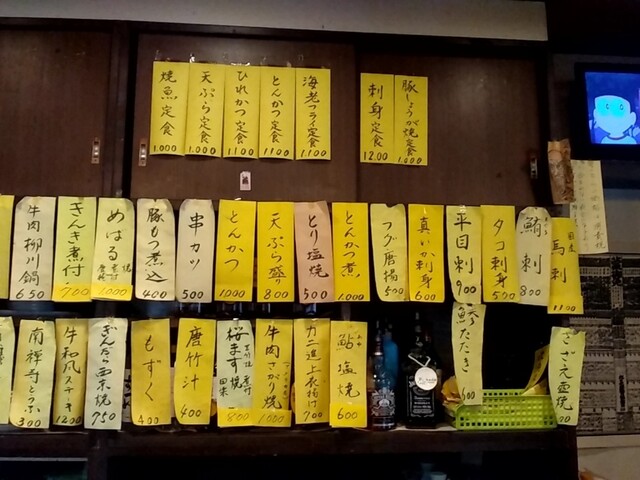 焼魚定食
1.000
天ぷら定食
1.000
ひれかつ定食
1100
とんかつ定食
1.100
海老フライ定食
1.100
刺身定食
1200
豚しょうが焼定食
1.000
牛肉柳川鍋
650
きんき煮付
700
めばる
1000
豚もつ煮込
400
串カツ
500
とんかつ
1000
天ぷら盛り
800
とり塩焼
500
とんかつ煮
1.000
フグ唐揚
500
真いか刺身
600
平目刺
900
タコ刺身
500
鮪刺
800
馬刺
1100
南禅寺とうふ
300
牛和風ステーキ
1200
ぎんだら西京焼
950
もずく
400
唐竹汁
400
桜ます焼
800
牛肉さがり焼
1000
カニ進上衣揚げ
700
鮎塩焼
600
鯵たたき
さざえ壺焼